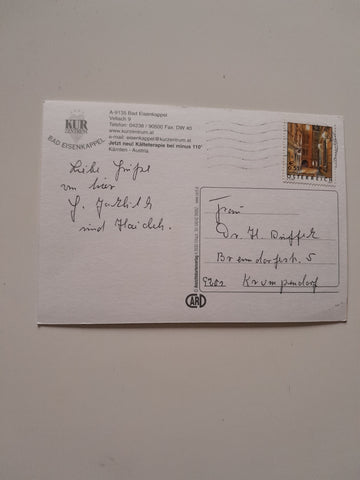 KUR
ZENTRUM
BAD EISENKAPPEL
A-9135 Bad Eisenkappel
Vellach 9
Telefon: 04238 / 90500 Fax. DW 40
www.kurzentrum.at
e-mail: eisenkappel@kurzentrum.at
Jetzt neu! Kältetherapie bei minus 110°
Kärnten - Austria
ÖSTERREICH
Liebe Grüße
von hier
und
Frau
Dr. H.
5
Krumpendorf
CARD